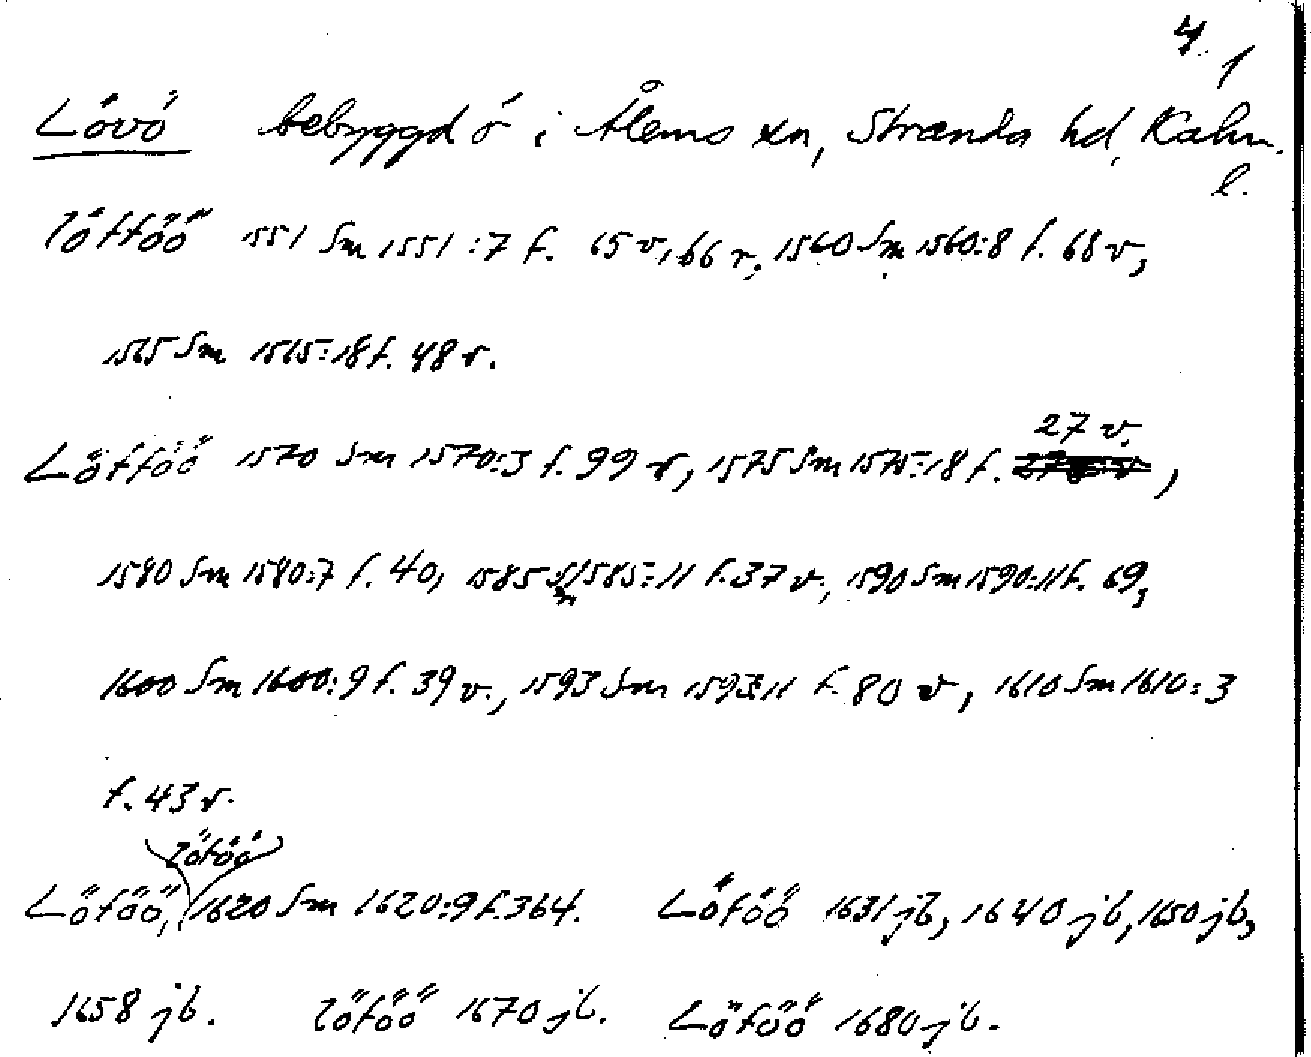 4.
1
Lövö bebyggd ö i Ålems sn, Stranda hd, Kalm.
l.
löfföö 1551 Sm 1551:7 f. 65 v, 66 r, 1560 Sm 1560:8 f. 68 v,
1565 Sm 1565:18 f. 48 r.
27 v.
Löfföö 1570 Sm 1570:3 f. 99 r, 1575 Sm 1575:18 f. ,
1580 Sm 1580:7 f. 40, 1585 Sm 1585:11 f. 37 v, 1590 Sm 1590:11 f. 69,
1600 Sm 1600:9 f. 39 v., 1593 Sm 1593:11 f. 80 v, 1610 Sm 1610:3
f. 43 r.
löföö
Löföö, 1620 Sm 1620:9 f. 364. Löföö 1631 jb, 1640 jb, 1650 jb,
1658 jb. löföö 1670 jb. Löföö 1680 jb.